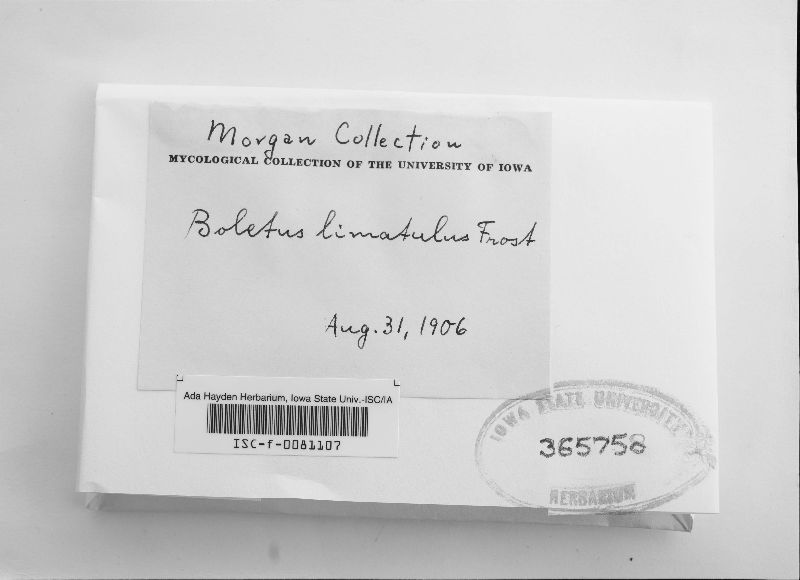 Morgan Collection
MYCOLOGICAL COLLECTION OF THE UNIVERSITY OF IOWA
Boletus limatulus Frost
Aug. 31, 1906
Ada Hayden Herbarium, Iowa State Univ.-ISC/IA
ISC-f-0081107
IOWA STATE UNIVERSITY
365758
HERBARIUM